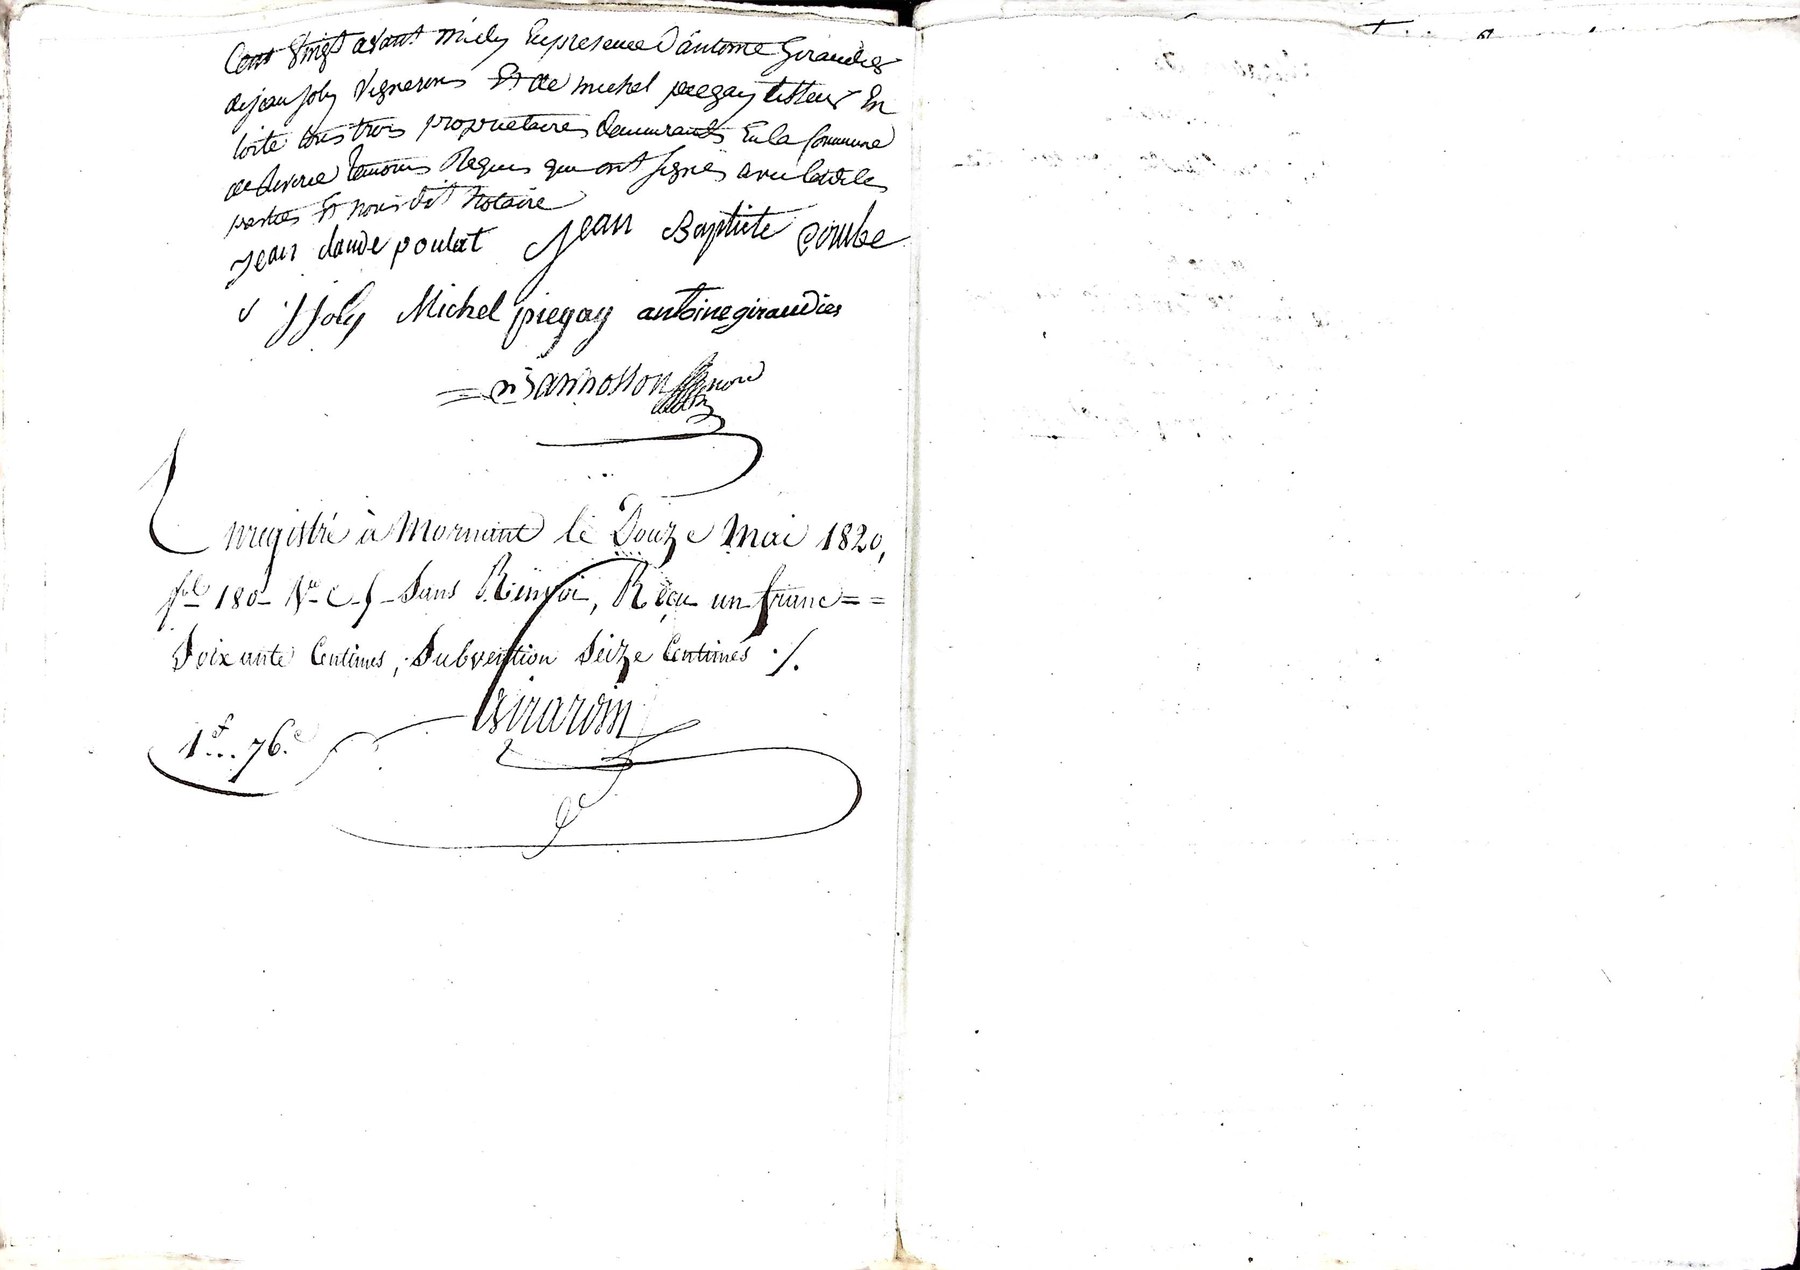 Cent Vingt avant midy En presence D'antome Giraudies
de jean Joly Vignerons Et de michel piegay tisseur En
toile tous trois proprietaires demeurants En la Commune
de Riverie temoins Requis qui ont signés avec lesdites
parties Et nous dit Notaire
Jean claude poulat Jean Baptiste Combe
JJoly Michel piegay antoine giraudies
Enregistré à Mornant le Douze Mai 1820,
fol 180 Vo C. Sans Renvoi, Reçu un franc ==
Soixante Centimes, Subvention Seize Centimes ./.
Girardin
1f... 76.c